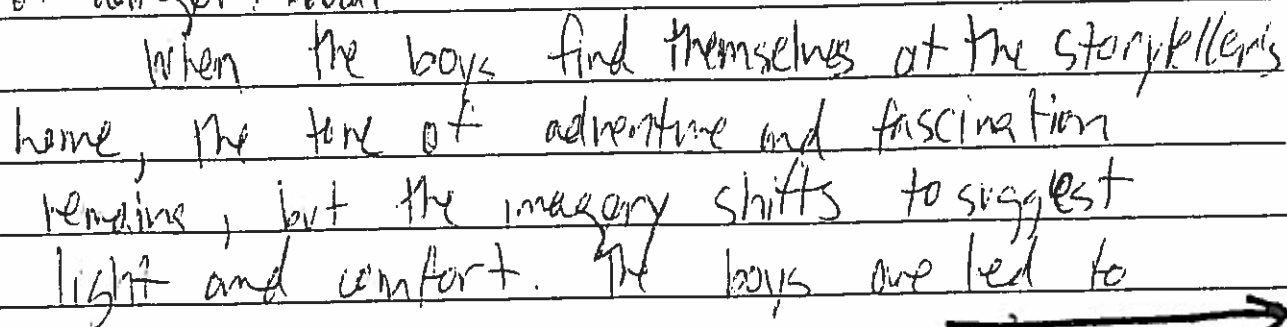 When the boys find themselves at the storyteller's
home, the tone of adventure and fascination
remains, but the imagery shifts to suggest
light and comfort. The boys are led to